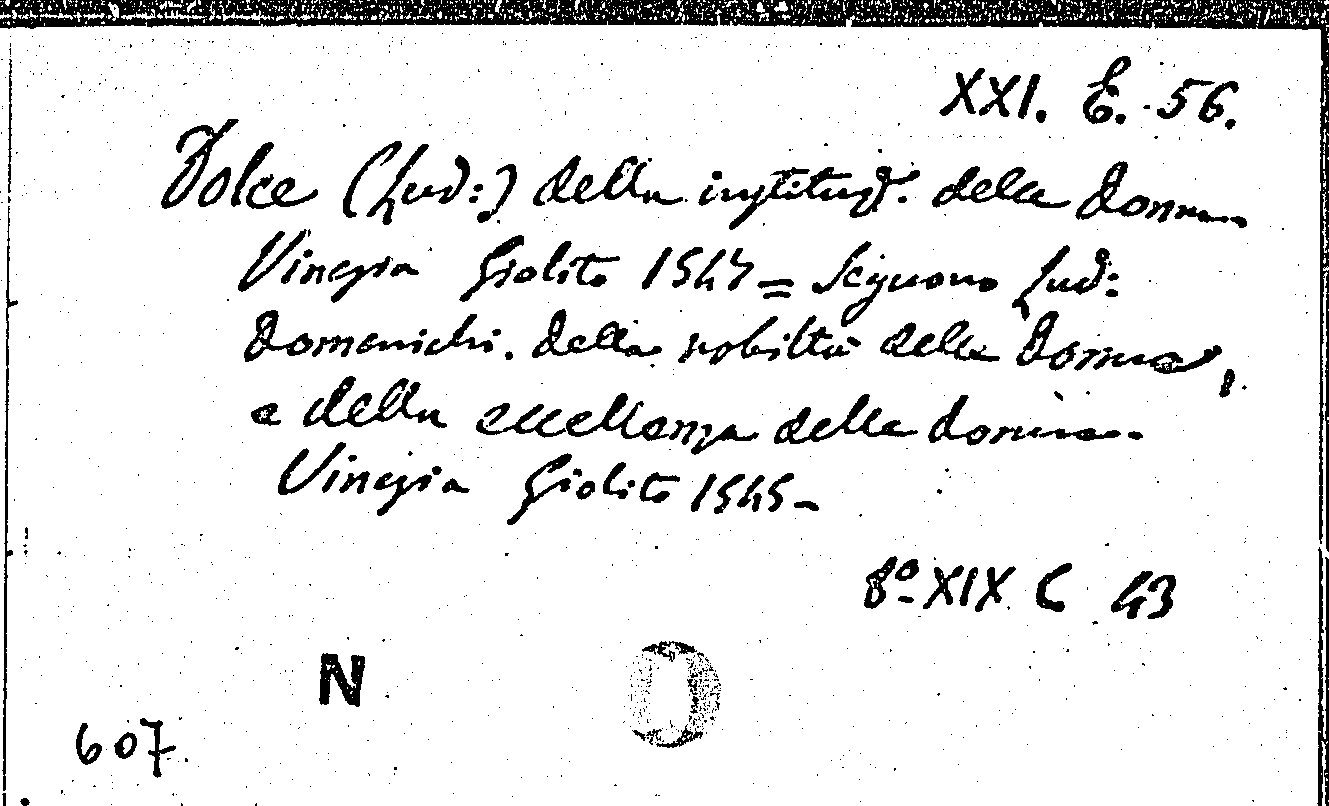 XXI. E. 56.
Dolce (Lud:) della instituz. delle donne
Vinegia Giolito 1547 = Seguono Lud:
Domenichi. della nobiltà delle Donne,
e della eccellenza delle donne.
Vinegia Giolito 1545-
8º XIX C 43
N
607